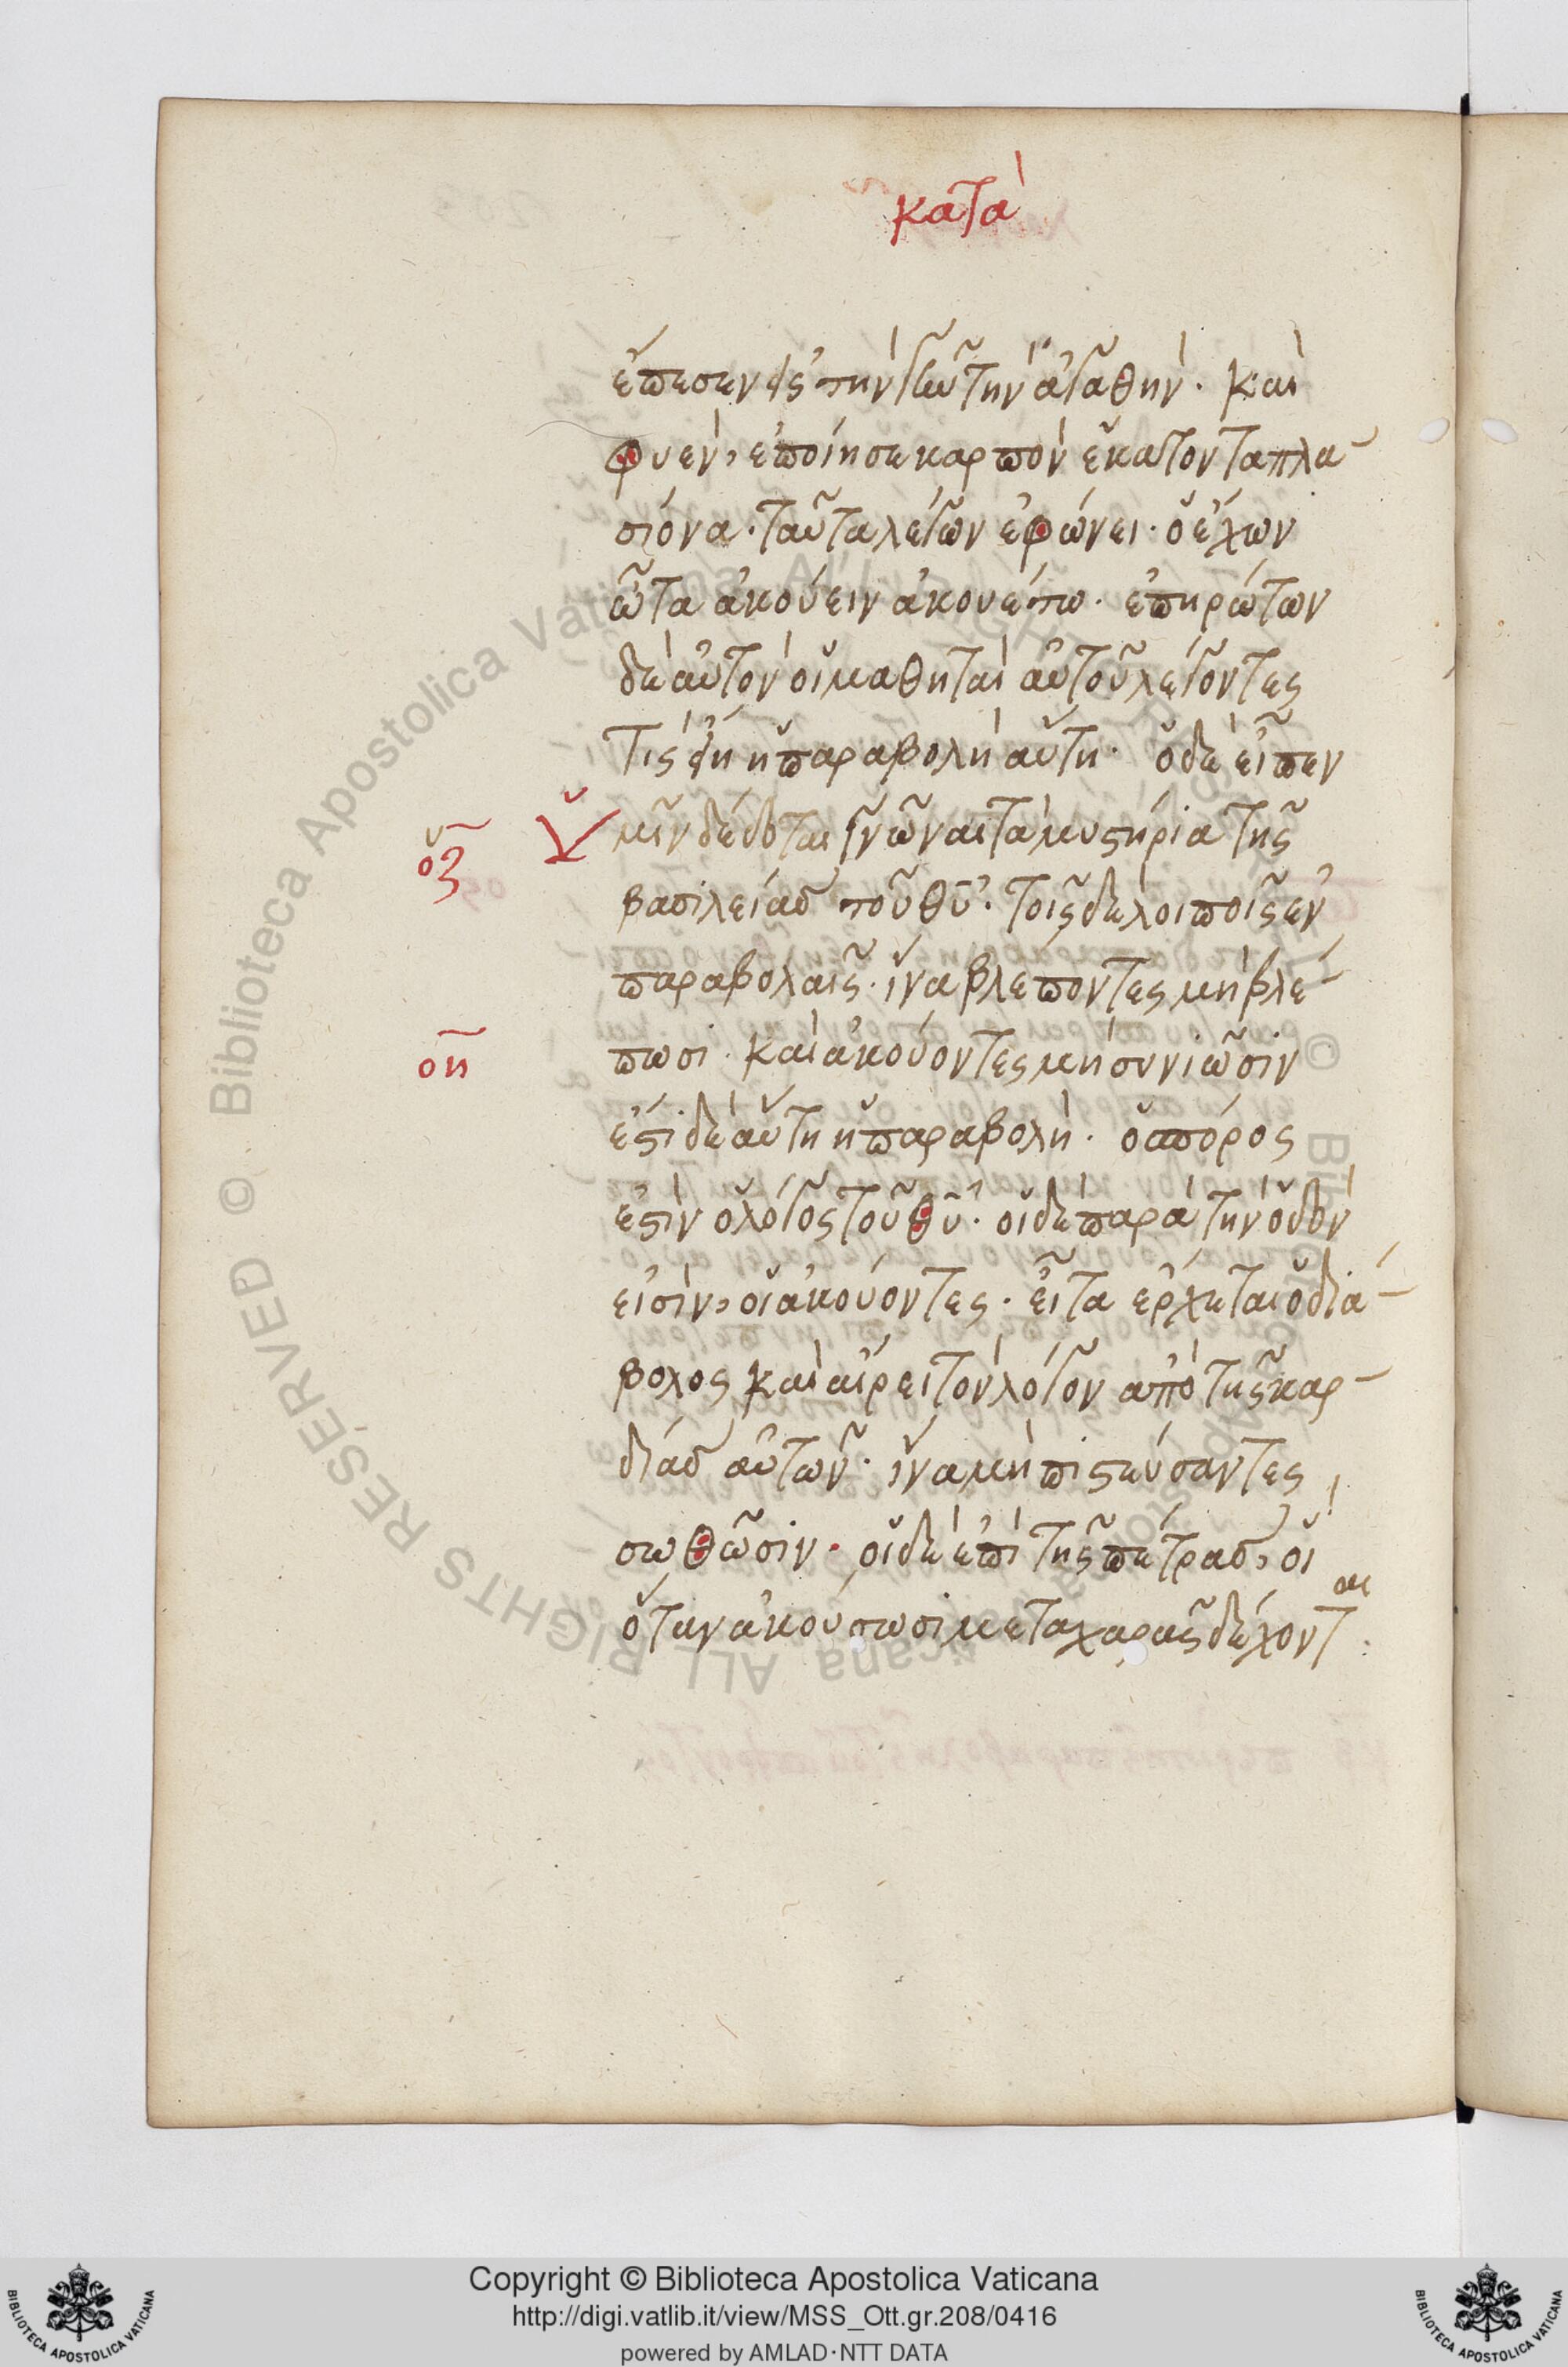 κατὰ
ἔπεσεν εἰς τὴν γῆν τὴν ἀγαθὴν· καὶ
φυὲν, ἐποίησε καρπὸν ἑκατονταπλα-
σιόνα· ταῦτα λέγων ἐφώνει· ὁ ἔχων
ὦτα ἀκούειν ἀκουέτω· ἐπηρώτων
δὲ αὐτὸν οἱ μαθηταὶ αὐτοῦ λέγοντες
τίς εἴη ἡ παραβολὴ αὕτη· ὁ δὲ εἶπεν
οζ ὑμῖν δέδοται γνῶναι τὰ μυστήρια τῆς
βασιλείας τοῦ θυ· τοῖς δὲ λοιποῖς ἐν
παραβολαῖς· ἵνα βλέποντες μὴ βλέ-
οη πωσι· καὶ ἀκούοντες μὴ συνιῶσιν
ἔστι δὲ αὕτη ἡ παραβολὴ· ὁ σπόρος
ἐστὶν ὁ λόγος τοῦ θυ· οἱ δὲ παρὰ τὴν ὁδὸν
εἰσὶν, οἱ ἀκούοντες· εἶτα ἔρχεται ὁ διά-
βολος καὶ αἴρει τὸν λόγον ἀπὸ τῆς καρ-
δίας αὐτῶν· ἵνα μὴ πιστεύσαντες
σωθῶσιν· οἱ δὲ ἐπὶ τῆς πέτρας, οἳ
ὅταν ἀκούσωσι μετα χαρᾶς δέχονται:
Copyright © Biblioteca Apostolica Vaticana
http://digi.vatlib.it/view/MSS_Ott.gr.208/0416
powered by AMLAD·NTT DATA
BIBLIOTECA APOSTOLICA VATICANA
BIBLIOTECA APOSTOLICA VATICANA